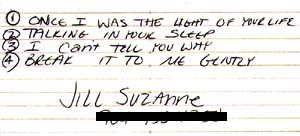 ① ONCE I WAS THE LIGHT OF YOUR LIFE
② TALKING IN YOUR SLEEP
③ I Can't TELL YOU WHY
④ BREAK IT TO ME GENTLY
JILL SUZANNE